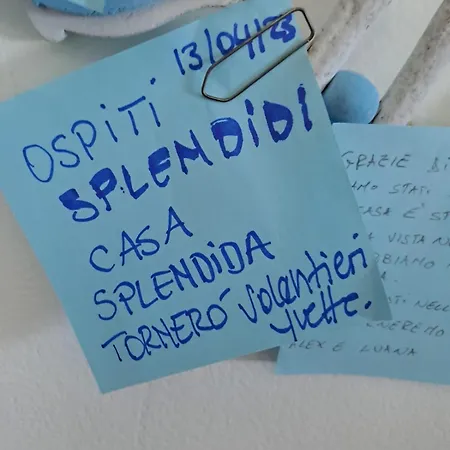 13/04/23
OSPITI
SPLENDIDI
CASA
SPLENDIDA
TORNERÓ volentieri
yvette.
GRAZIE DI
AMO STATI
ASA È ST
VISTA
BBIAMO
NELL
EREMO
ALEX E LUANA